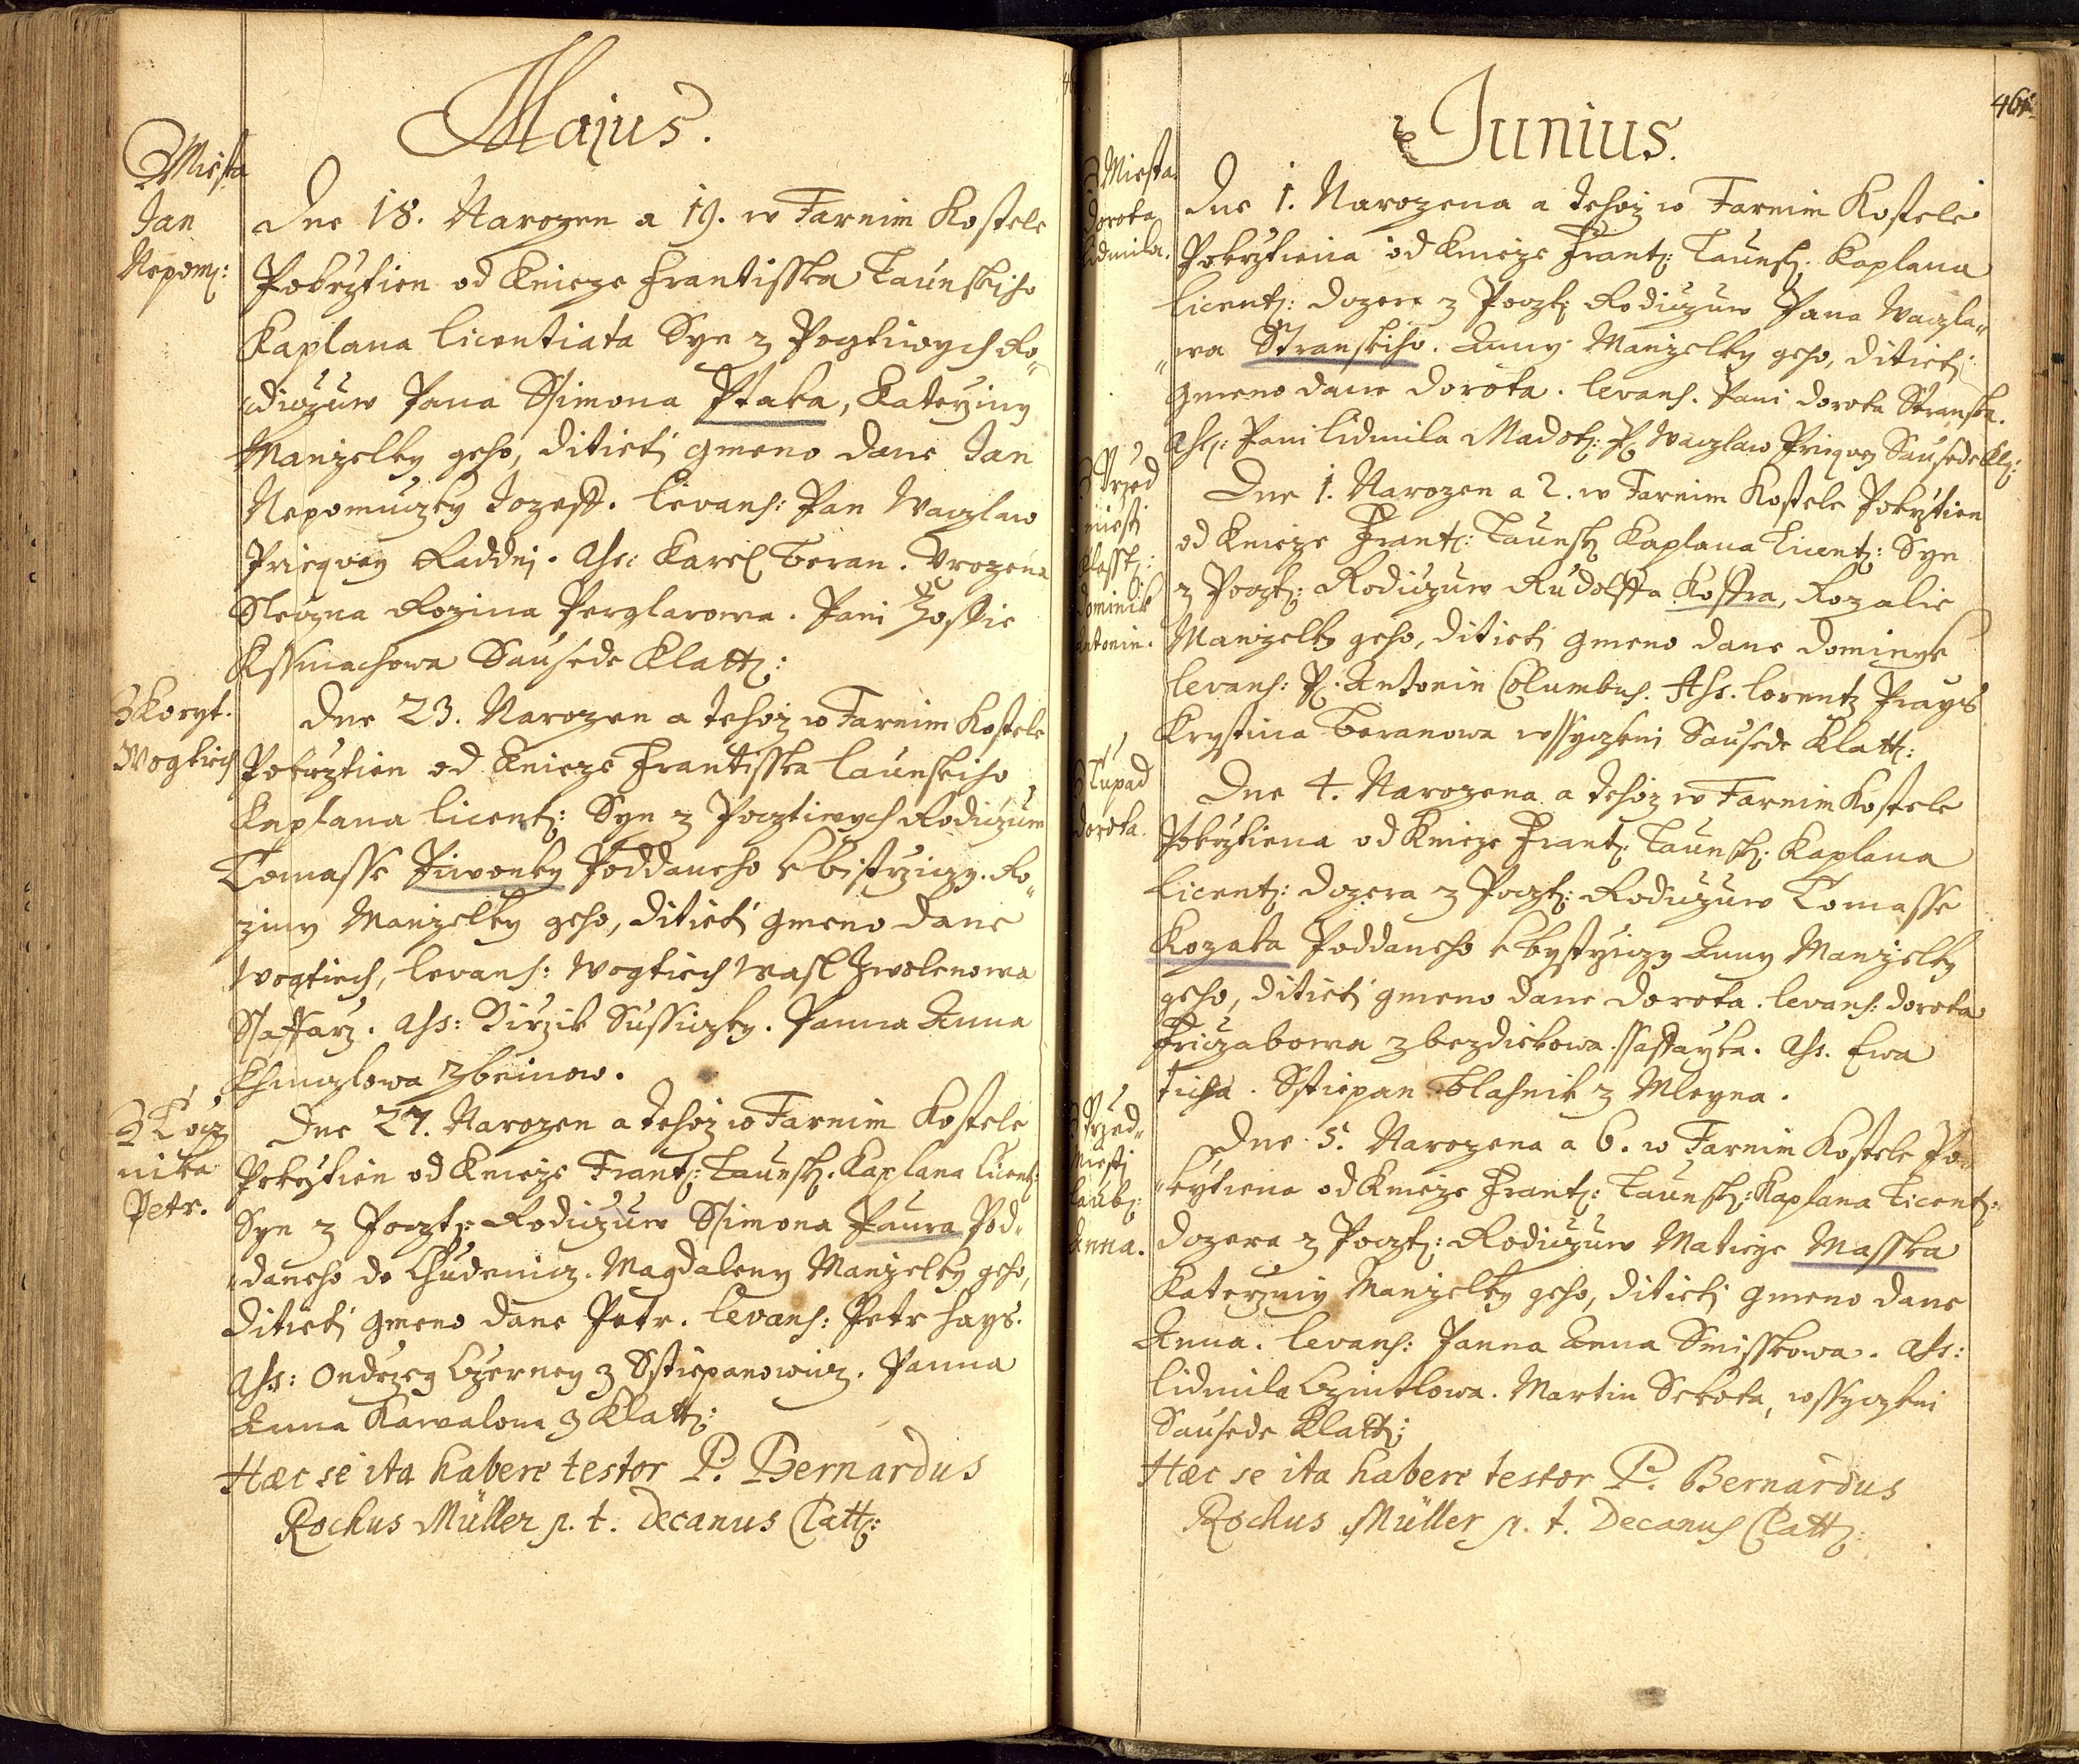 Majus.
z Miesta
Jan
Nepom:
Dne 18. Narozen a 19. w Farnim Kostele
Pokrztien od Knieze Frantisska Taunskiho
Kaplana licentiata Syn z Pogtiwych Ro„
diczuw Pana Ssimona Ptaka, Kateržiny
Manzelky geho, ditieti gmeno dane Jan
Nepomuczky Jozeff. levans: Pan Waczlaw
Pricqvey Raddnj. Ass: Karel Beran. Vrozena
Sleczna Rozina Perglarowa. Pani Zoffie
Kssinachowa Sausede Klatt:
z Koryt.
Wogtiech
Dne 23. Narozen a tehoz w Farnim Kostele
Pokrztien od Knieze Frantisska Taunskiho
Kaplana licent: Syn z Pocztiwych Rodiczuw
Tomasse Piwonky Poddaneho k bistrziczy. Ro„
ziny Manzelky geho, ditieti gmeno dane
Wogtiech, levans: Wogtiech Wasl Zwolenowa
Ssaffarz. Ass: Dirzik Sussiczky. Panna Anna
Chmczlowa z beinow.
z Tocz
nika
Petr.
Dne 27. Narozen a tehoz w Farnim Kostele
Pokrztien od Knieze Frant: Taunsk: Kaplana licent:
Syn z Poczt: Rodiczuw Ssimona Paura Pod„
„daneho do Chudenicz. Magdaleny Manzelky geho,
ditieti gmeno dane Petr. levans: Petr hays.
Ass: Ondrzeg Czerney z Sstiepanowicz. Panna
Anna Kawalowa z Klatt:
Hæc se ita habere testor P. Bernardus
Rochus Müller p. t. Decanus Clatt:
461.
Junius.
z Miesta
Dorota
lidmila.
Dne 1. Narozena a tehoz w Farnim Kostele
Pokrztiena od Knieze Frant: Taunsk: Kaplana
licent: Dcera z Poczt: Rodiczuw Pana Waczla„
„wa Stranskiho. Anny Manzelky geho, ditieti
gmeno dane Dorota. levans. Pani Dorota Stranska.
Ass: Pani lidmila Madot: P: Waczlaw Pricqvey Sausede Kl:
Przed
miesti
Klasst:
Dominik
Antonin.
Dne 1. Narozen a 2. w Farnim Kostele Pokrztien
od Knieze Frant: Taunsk: Kaplana Licent: Syn
z Poczt: Rodiczuw Rudolffa Koffra, Rozalie
Manzelky geho, ditieti gmeno dane Dominyk
levans: P: Antonin Columbus. Ass. lorentz Prays
Krystina Beranowa wssyczkni Sausede Klatt:
z Tupad
Dorota.
Dne 4. Narozena a tehoz w Farnim Kostele
Pokrztiena od Knieze Frant: Taunsk: Kaplana
licent: Dcera z Poczt: Rodiczuw Tomasse
Kozaka Poddaneho k bystrziczy Anny Manzelky
geho, ditieti gmeno dane Dorota. levans: Dorota
Friczabowa z bezdiekowa ssaffarzka. Ass. Ewa
ticha. Sstiepan blahnik z Mleyna.
Przed„
miesti
laub:
Anna.
Dne 5. Narozena a 6. w Farnim Kostele Po„
„krztiena od Knieze Frant: Taunsk: Kaplana Licent:
Dcera z Poczt: Rodiczuw Matieje Masska
Katerziny Manzelky geho, ditieti gmeno dane
Anna. levans: Panna Anna Smisskowa. Ass:
lidmila Czintlowa. Martin Sekota, wssyczkni
Sausede Klatt:
Hæc se ita habere testor P. Bernardus
Rochus Müller p. t. Decanus Clatt: